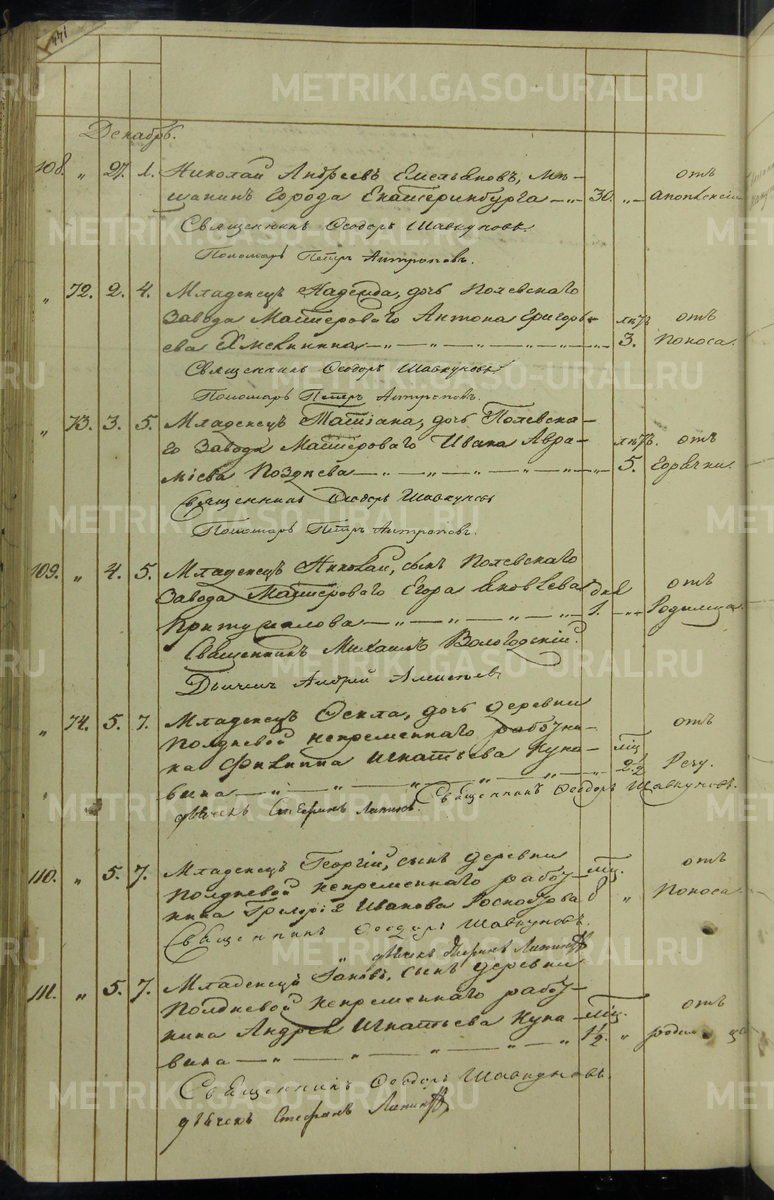 Декабрь.
108. " 27. 1. Николай Андреевъ Емельяновъ, мѣ-
щанинъ города Екатеринбурга — " — 30. " — отъ
Священникъ Ѳеодоръ Шавкуновъ.
Пономарь Петръ Антроповъ.
" 72. 2. 4. Младенецъ Надежда, дочь Полевскаго
завода Мастероваго Антона Григорь-
ева Хмелинина — " — " — 3. отъ поноса.
Священникъ Ѳеодоръ Шавкуновъ
Пономарь Петръ Антроповъ.
" 73. 3. 5. Младенецъ Татіана, дочь Полевска-
го завода Мастероваго Ивана Авра-
міева Позднева — " — " — 5. отъ горячки.
Священникъ Ѳеодоръ Шавкуновъ
Пономарь Петръ Антроповъ.
109. " 4. 5. Младенецъ Николай, сынъ Полевскаго
завода Мастероваго Егора Яковлева
— " — " — 1. " — отъ родимца.
Священникъ Михаилъ Вологодскій.
Андрей
" 74. 5. 7. Младенецъ Ѳекла, дочь деревни
Полдневой непременнаго работни-
ка Филиппа Игнатьева Куна-
вина — " — " — 2 1/2 отъ
Священникъ Ѳеодоръ Шавкуновъ.
дьячекъ Стефанъ Ляпинъ.
110. " 5. 7. Младенецъ Георгій, сынъ деревни
Полдневой непременнаго работ-
ника Григорія Иванова 8 " отъ поноса
Священникъ Ѳеодоръ Шавкуновъ.
дьячекъ Стефанъ Ляпинъ
111. " 5. 7. Младенецъ Іаковъ, сынъ деревни
Полдневой непременнаго работ-
ника Андрея Игнатьева Куна-
вина — " — " — 1 1/2. " отъ родимца
Священникъ Ѳеодоръ Шавкуновъ.
дьячекъ Стефанъ Ляпинъ
METRIKI.GASO-URAL.RU